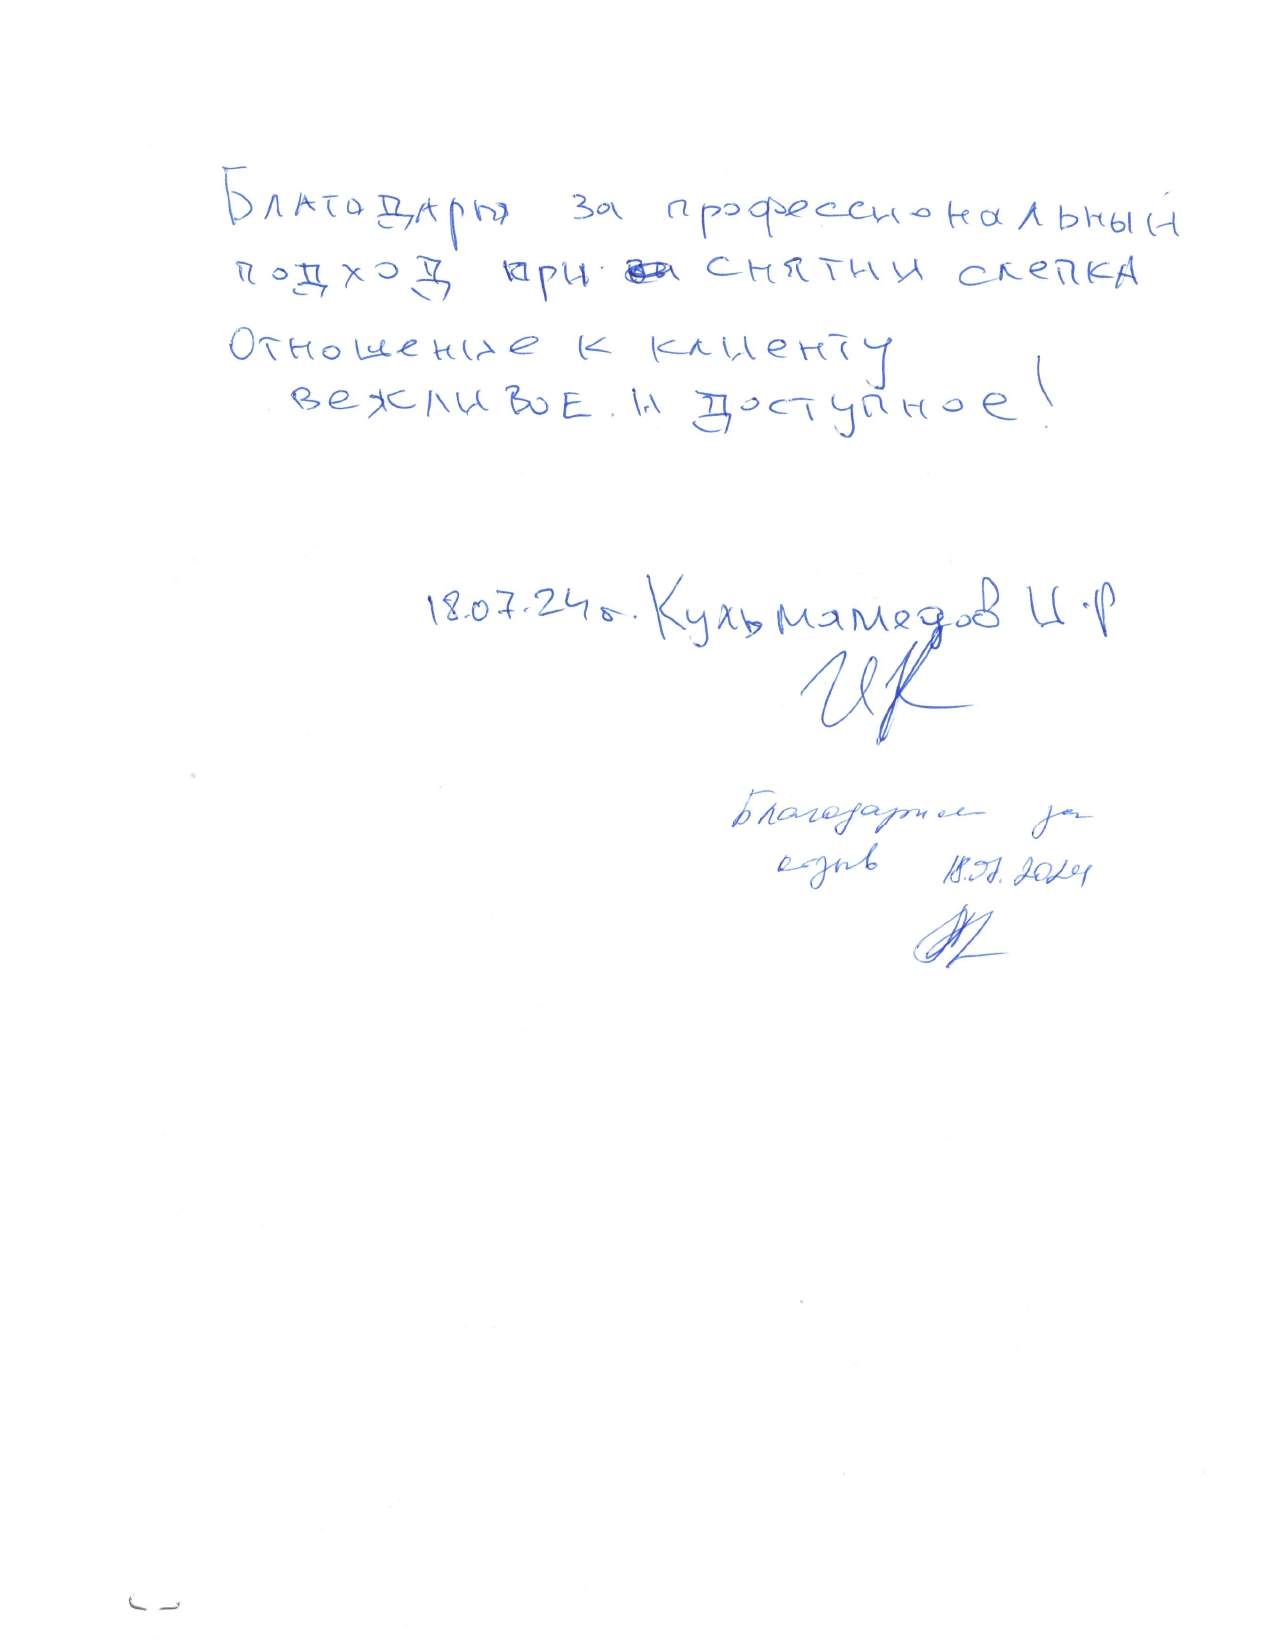 Благодарю за профессиональный
подход при снятии слепка
Отношение к клиенту
вежливое и доступное!
18.07.24г. Кульмамедов И.Р
ИК
Благодарим за
отзыв 18.07.2024